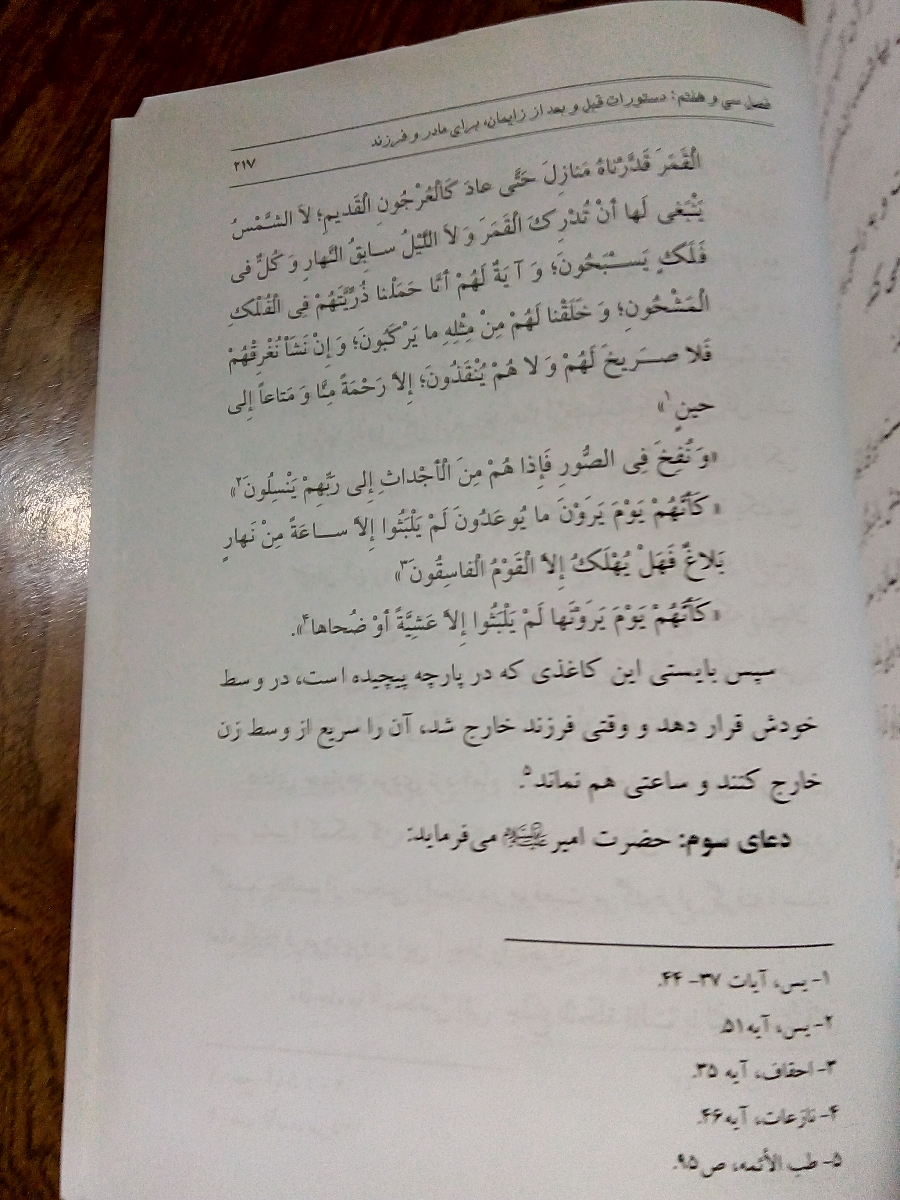 فصل سی و هفتم: دستورات قبل و بعد از زایمان، برای مادر و فرزند
۲۱۷
الْقَمَرَ قَدَّرْناهُ مَنازِلَ حَتَّى عادَ كَالْعُرْجُونِ الْقَديمِ؛ لاَ الشَّمْسُ
يَنْبَغى لَها أَنْ تُدْرِكَ الْقَمَرَ وَ لاَ اللَّيْلُ سابِقُ النَّهارِ وَ كُلٌّ فى
فَلَكٍ يَسْبَحُونَ؛ وَ آيَةٌ لَهُمْ أَنَّا حَمَلْنا ذُرِّيَّتَهُمْ فِى الْفُلْكِ
الْمَشْحُونِ؛ وَ خَلَقْنا لَهُمْ مِنْ مِثْلِهِ ما يَرْكَبُونَ؛ وَ إِنْ نَشَأْ نُغْرِقْهُمْ
فَلا صَريخَ لَهُمْ وَ لا هُمْ يُنْقَذُونَ؛ إِلاَّ رَحْمَةً مِنَّا وَ مَتاعاً إِلى
حينٍ۱»
«وَ نُفِخَ فِى الصُّورِ فَإِذا هُمْ مِنَ الْأَجْداثِ إِلى رَبِّهِمْ يَنْسِلُونَ۲»
«كَأَنَّهُمْ يَوْمَ يَرَوْنَ ما يُوعَدُونَ لَمْ يَلْبَثُوا إِلاَّ ساعَةً مِنْ نَهارٍ
بَلاغٌ فَهَلْ يُهْلَكُ إِلاَّ الْقَوْمُ الْفاسِقُونَ۳»
«كَأَنَّهُمْ يَوْمَ يَرَوْنَها لَمْ يَلْبَثُوا إِلاَّ عَشِيَّةً أَوْ ضُحاها۴».
سپس بایستی این کاغذی که در پارچه پیچیده است، در وسط
خودش قرار دهد و وقتی فرزند خارج شد، آن را سریع از وسط زن
خارج کنند و ساعتی هم نماند۵.
دعای سوم: حضرت امیر علیه‌السلام می‌فرماید:
۱- یس، آیات ۳۷- ۴۴.
۲- یس، آیه ۵۱.
۳- احقاف، آیه ۳۵.
۴- نازعات، آیه ۴۶.
۵- طب الأئمه، ص ۹۵.